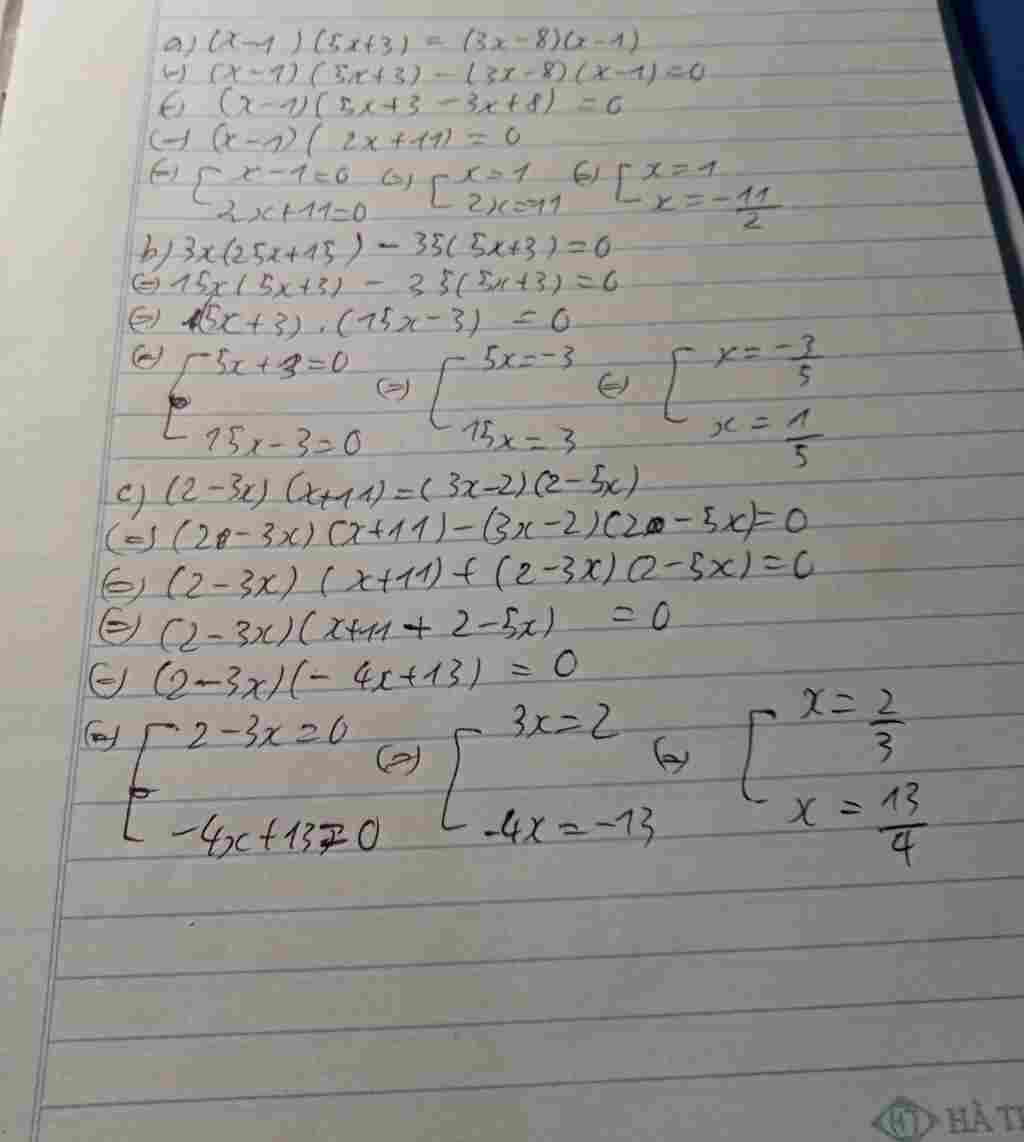 a) (x-1)(5x+3) = (3x-8)(x-1)
(=) (x-1)(5x+3) - (3x-8)(x-1) = 0
(=) (x-1)(5x+3 - 3x+8) = 0
(=) (x-1)(2x+11) = 0
(=) [ x-1=0 (=) [ x=1 (=) [ x=1
2x+11=0 2x=-11 x=-11/2
b) 3x(25x+15) - 35(5x+3) = 0
(=) 15x(5x+3) - 35(5x+3) = 0
(=) (5x+3).(15x-3) = 0
(=) [ 5x+3=0 (=) [ 5x=-3 (=) [ x=-3/5
15x-3=0 15x=3 x=1/5
c) (2-3x)(x+11) = (3x-2)(2-5x)
(=) (2-3x)(x+11) - (3x-2)(2-5x) = 0
(=) (2-3x)(x+11) + (2-3x)(2-5x) = 0
(=) (2-3x)(x+11+2-5x) = 0
(=) (2-3x)(-4x+13) = 0
(=) [ 2-3x=0 (=) [ 3x=2 (=) [ x=2/3
-4x+13=0 -4x=-13 x=13/4
HÀ